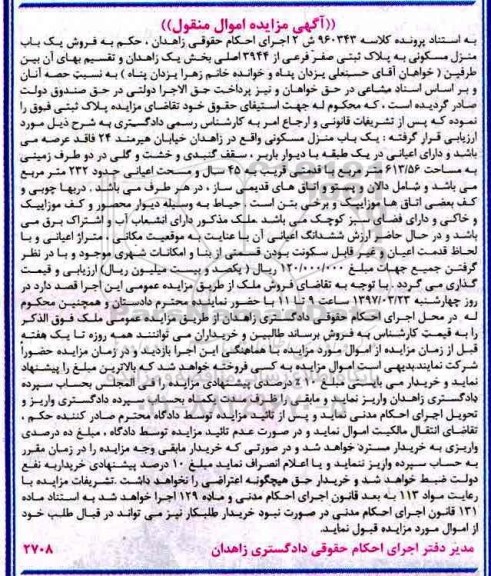 ((آگهی مزایده اموال منقول))
به استناد پرونده کلاسه ۹۶۰۳۴۳ ش ۲ اجرای احکام حقوقی زاهدان ، حکم به فروش یک باب
منزل مسکونی به پلاک ثبتی صفر فرعی از ۳۹۴۴ اصلی بخش یک زاهدان و تقسیم بهای آن بین
طرفین ( خواهان آقای حسنعلی یزدان پناه و خوانده خانم زهرا یزدان پناه ) به نسبت حصه آنان
و بر اساس اسناد مشاعی در حق خواهان و نیز پرداخت حق الاجرا دولتی در حق صندوق دولت
صادر گردیده است ، که محکوم له جهت استیفای حقوق خود تقاضای مزایده پلاک ثبتی فوق را
نموده که پس از تشریفات قانونی و ارجاع امر به کارشناس رسمی دادگستری به شرح ذیل مورد
ارزیابی قرار گرفته : یک باب منزل مسکونی واقع در زاهدان خیابان هیرمند ۲۴ فاقد عرصه می
باشد و دارای اعیانی در یک طبقه با دیوار باربر ، سقف گنبدی و خشت و گلی در دو طرف زمینی
به مساحت ۶۱۳/۵۶ متر مربع با قدمتی قریب به ۴۵ سال و مساحت اعیانی حدود ۲۳۲ متر مربع
می باشد و شامل دالان و پستو و اتاق های قدیمی ساز ، در هر طرف می باشد . دربها چوبی و
کف بعضی اتاق ها موزاییک و برخی بتن است . حیاط به وسیله دیوار محصور و کف موزاییک
و خاکی و دارای فضای سبز کوچک می باشد ملک مذکور دارای انشعاب آب و اشتراک برق می
باشد و در حال حاضر ارزش ششدانگ اعیانی آن با عنایت به موقعیت مکانی ، متراژ اعیانی و با
لحاظ قدمت اعیان و غیر قابل سکونت بودن قسمتی از بنا و امکانات شهری موجود و با در نظر
گرفتن جمیع جهات مبلغ ۱۲۰/۰۰۰/۰۰۰ ریال ( یکصد و بیست میلیون ریال) ارزیابی و قیمت
گذاری می گردد . با توجه به تقاضای فروش ملک از طریق مزایده عمومی این اجرا قصد دارد در
روز چهارشنبه ۱۳۹۷/۰۳/۲۳ ساعت ۹ تا ۱۱ با حضور نماینده محترم دادستان و همچنین محکوم
له در محل اجرای احکام حقوقی دادگستری زاهدان از طریق مزایده عمومی ملک فوق الذکر
را به قیمت کارشناس به فروش برساند طالبین و خریداران می توانند همه روزه تا یک هفته
قبل از زمان مزایده از اموال مورد مزایده با هماهنگی این اجرا بازدید و در زمان مزایده حضوراً
شرکت نمایند.بدیهی است اموال مزایده به کسی فروخته خواهد شد که بالاترین مبلغ را پیشنهاد
نماید و خریدار می بایست مبلغ ۱۰ درصدی پیشنهادی مزایده را فی المجلس بحساب سپرده
دادگستری زاهدان واریز نماید و مابقی را ظرف مدت یکماه بحساب سپرده دادگستری واریز و
تحویل اجرای احکام مدنی نماید و پس از تائید مزایده توسط دادگاه محترم صادر کننده حکم ،
تقاضای انتقال مالکیت اموال نماید و در صورت عدم تائید مزایده توسط دادگاه ، مبلغ ده درصدی
واریزی به خریدار مسترد خواهد شد و در صورتی که خریدار مابقی وجه مزایده را در زمان مقرر
به حساب سپرده واریز ننماید و یا اعلام انصراف نماید مبلغ ۱۰ درصد پیشنهادی خریداربه نفع
دولت ضبط خواهد شد و خریدار حق هیچگونه اعتراضی را نخواهد داشت .تشریفات مزایده با
رعایت مواد ۱۱۳ به بعد قانون اجرای احکام مدنی و ماده ۱۲۹ اجرا خواهد شد به استناد ماده
۱۳۱ قانون اجرای احکام مدنی در صورت نبود خریدار طلبکار نیز می تواند در قبال طلب خود
از اموال مورد مزایده قبول نماید.
مدیر دفتر اجرای احکام حقوقی دادگستری زاهدان ۲۷۰۸